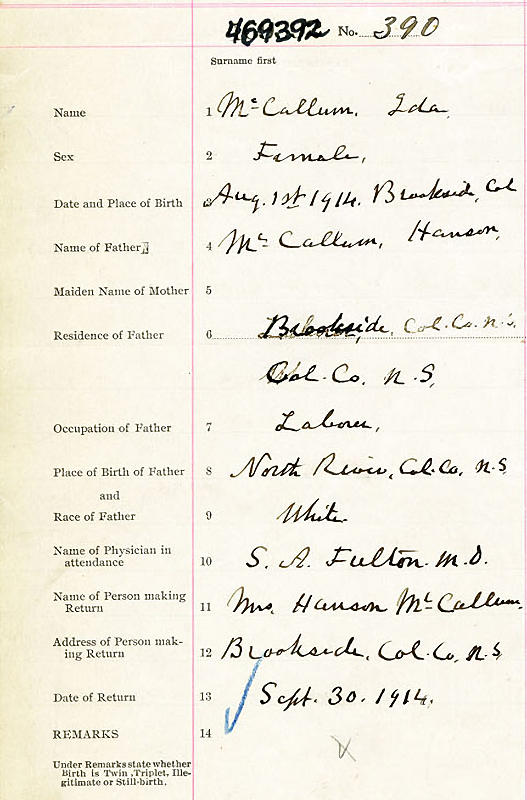 469392 No. 390
Surname first
Name 1 McCallum, Ida
Sex 2 Female,
Date and Place of Birth 3 Aug. 1st 1914. Brookside, Col
Name of Father 4 McCallum, Hanson,
Maiden Name of Mother 5
Residence of Father 6 Brookside, Col. Co. N.S.
Col. Co. N.S,
Occupation of Father 7 Laborer,
Place of Birth of Father 8 North River, Col. Co, N.S
and
Race of Father 9 White.
Name of Physician in
attendance 10 S. A. Fulton. M.D.
Name of Person making
Return 11 Mrs. Hanson McCallum.
Address of Person mak-
ing Return 12 Brookside, Col. Co, N.S
Date of Return 13 Sept. 30. 1914.
REMARKS 14
Under Remarks state whether
Birth is Twin, Triplet, Ille-
gitimate or Still-birth.